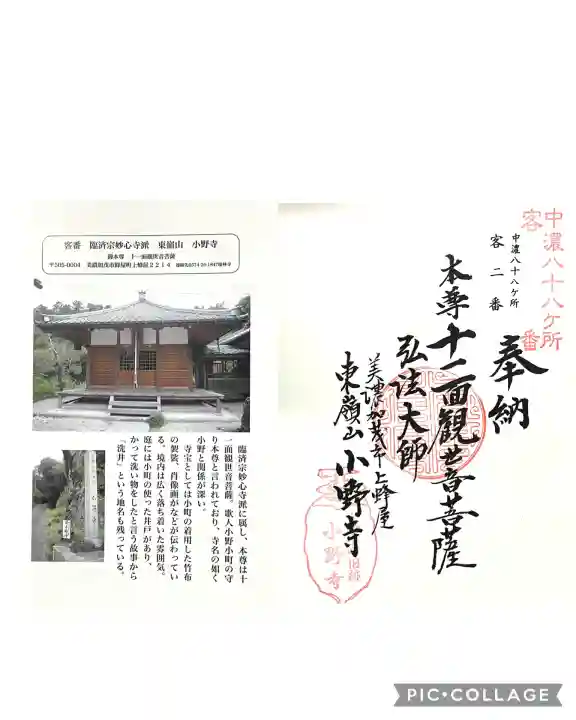 客番 臨済宗妙心寺派 東嶺山 小野寺
御本尊 十一面観世音菩薩
〒505-0004 美濃加茂市蜂屋町上蜂屋2214
臨済宗妙心寺派に属し、本尊は十
一面観世音菩薩。歌人小野小町の守
り本尊と言われており、寺名の如く
小野と関係が深い。
寺宝としては小町の着用した竹布
の袈裟、肖像画がなどが伝わってい
る。境内は広く落ち着いた雰囲気。
庭には小町の使った井戸があり、
かつて洗い物をしたと言う故事から
「洗井」という地名も残っている。
中濃八十八ケ所
客 番
中濃八十八ケ所
客二番
奉納
本尊十一面観世音菩薩
弘法大師
美濃加茂市上蜂屋
東嶺山 小野寺
小野寺
PIC•COLLAGE